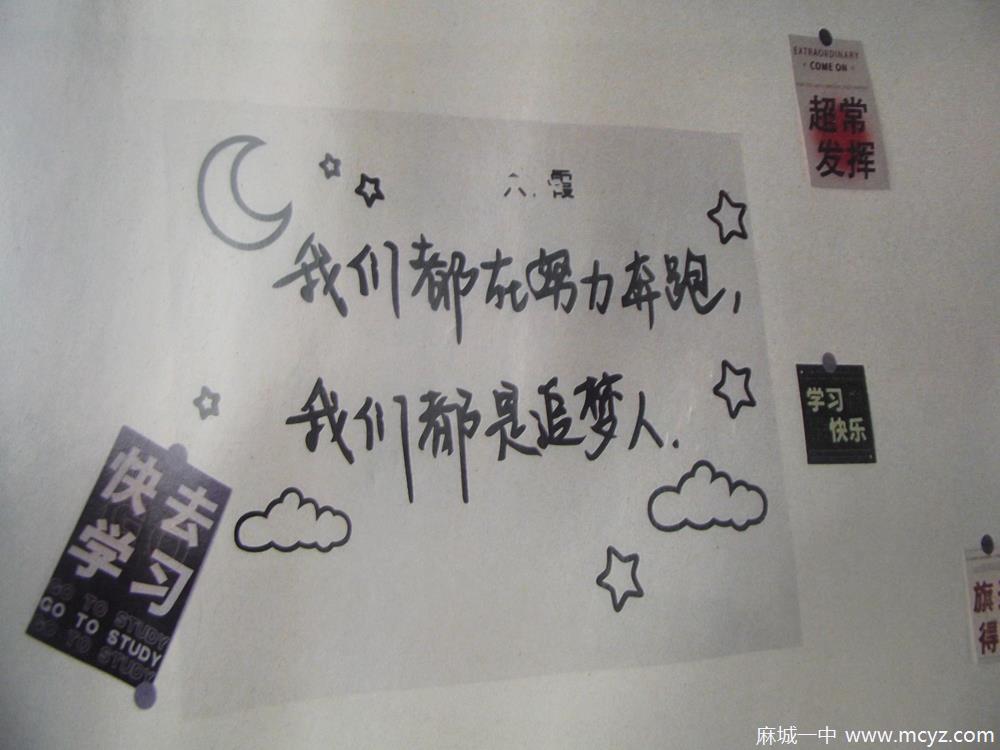 EXTRAORDINARY
· COME ON ·
超常
发挥
霞
我们都在努力奔跑，
我们都是追梦人.
学习
快乐
快去
学习
GO TO STUDY
GO TO STUDY
GO TO STUDY
旗
得
麻城一中 www.mcyz.com